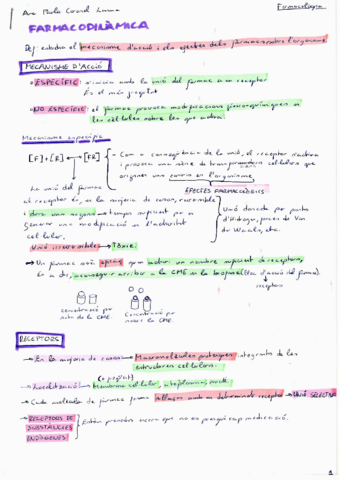 Farmacologia
FARMACODINÀMICA
Def: estudia el mecanisme d'acció i els efectes dels fàrmacs sobre l'organisme.
MECANISME D'ACCIÓ
ESPECÍFIC: s'inicia amb la unió del fàrmac a un receptor
És el més freqüent
NO ESPECÍFIC: el fàrmac provoca modificacions fisicoquímiques a
les cèl·lules sobre les que actua.
Mecanisme específic
[F]+[R] [FR] - Com a conseqüència de la unió, el receptor s'activa
i provoca una sèrie de transformacions cel·lulars que
originen uns canvis en l'organisme
EFECTES FARMACOLÒGICS
La unió del fàrmac
al receptor és, en la majoria de casos, reversible
i dura uns segons → temps suficient per a
generar una modificació en l'activitat
cel·lular.
Unió irreversible → Tòxic.
Unió donada per ponts
d'Hidrogen, forces de Van
der Waals, etc.
Un fàrmac serà quan activi un nombre suficient de receptors,
És a dir, aconsegueixi arribar a la CME en la biofase (lloc d'acció del fàrmac)
receptors
concentració per
sota de la CME.
Concentració per
sobre la CME.
RECEPTORS
En la majoria de casos → Macromolècules proteiques integrants de les
estructures cel·lulars.
Localització → membrana cel·lular, citoplasma, nucli.
Cada molècula de fàrmac forma enllaços amb un determinat receptor → UNIÓ SELECTIVA
RECEPTORS DE
SUBSTÀNCIES
ENDÒGENES
Estan presents encara que no es prengui cap medicació.
1